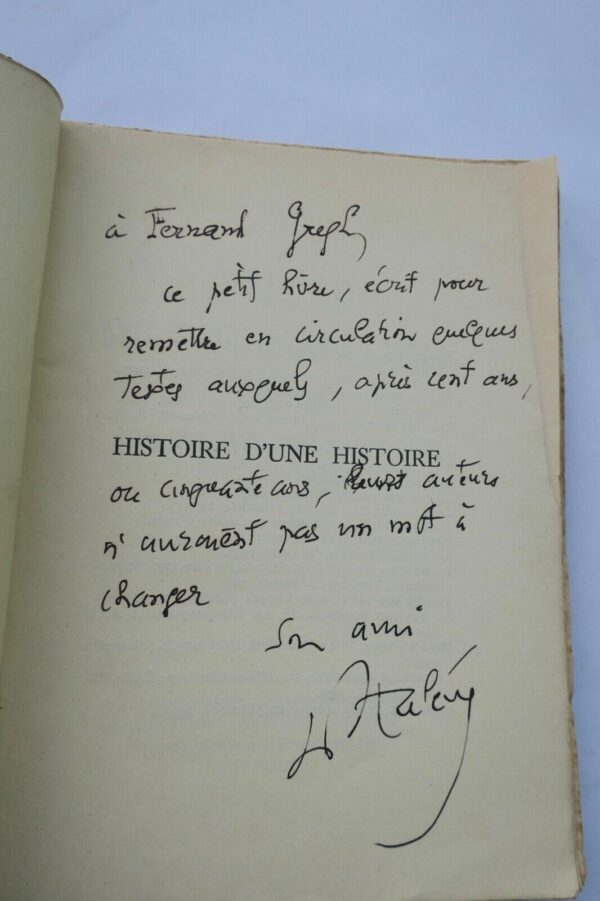 à Fernand Gregh
ce petit livre, écrit pour
remettre en circulation quelques
textes auxquels, après cent ans,
HISTOIRE D'UNE HISTOIRE
ou cinquante ans, leurs auteurs
n'auraient pas un mot à
changer
Son ami
D Halévy